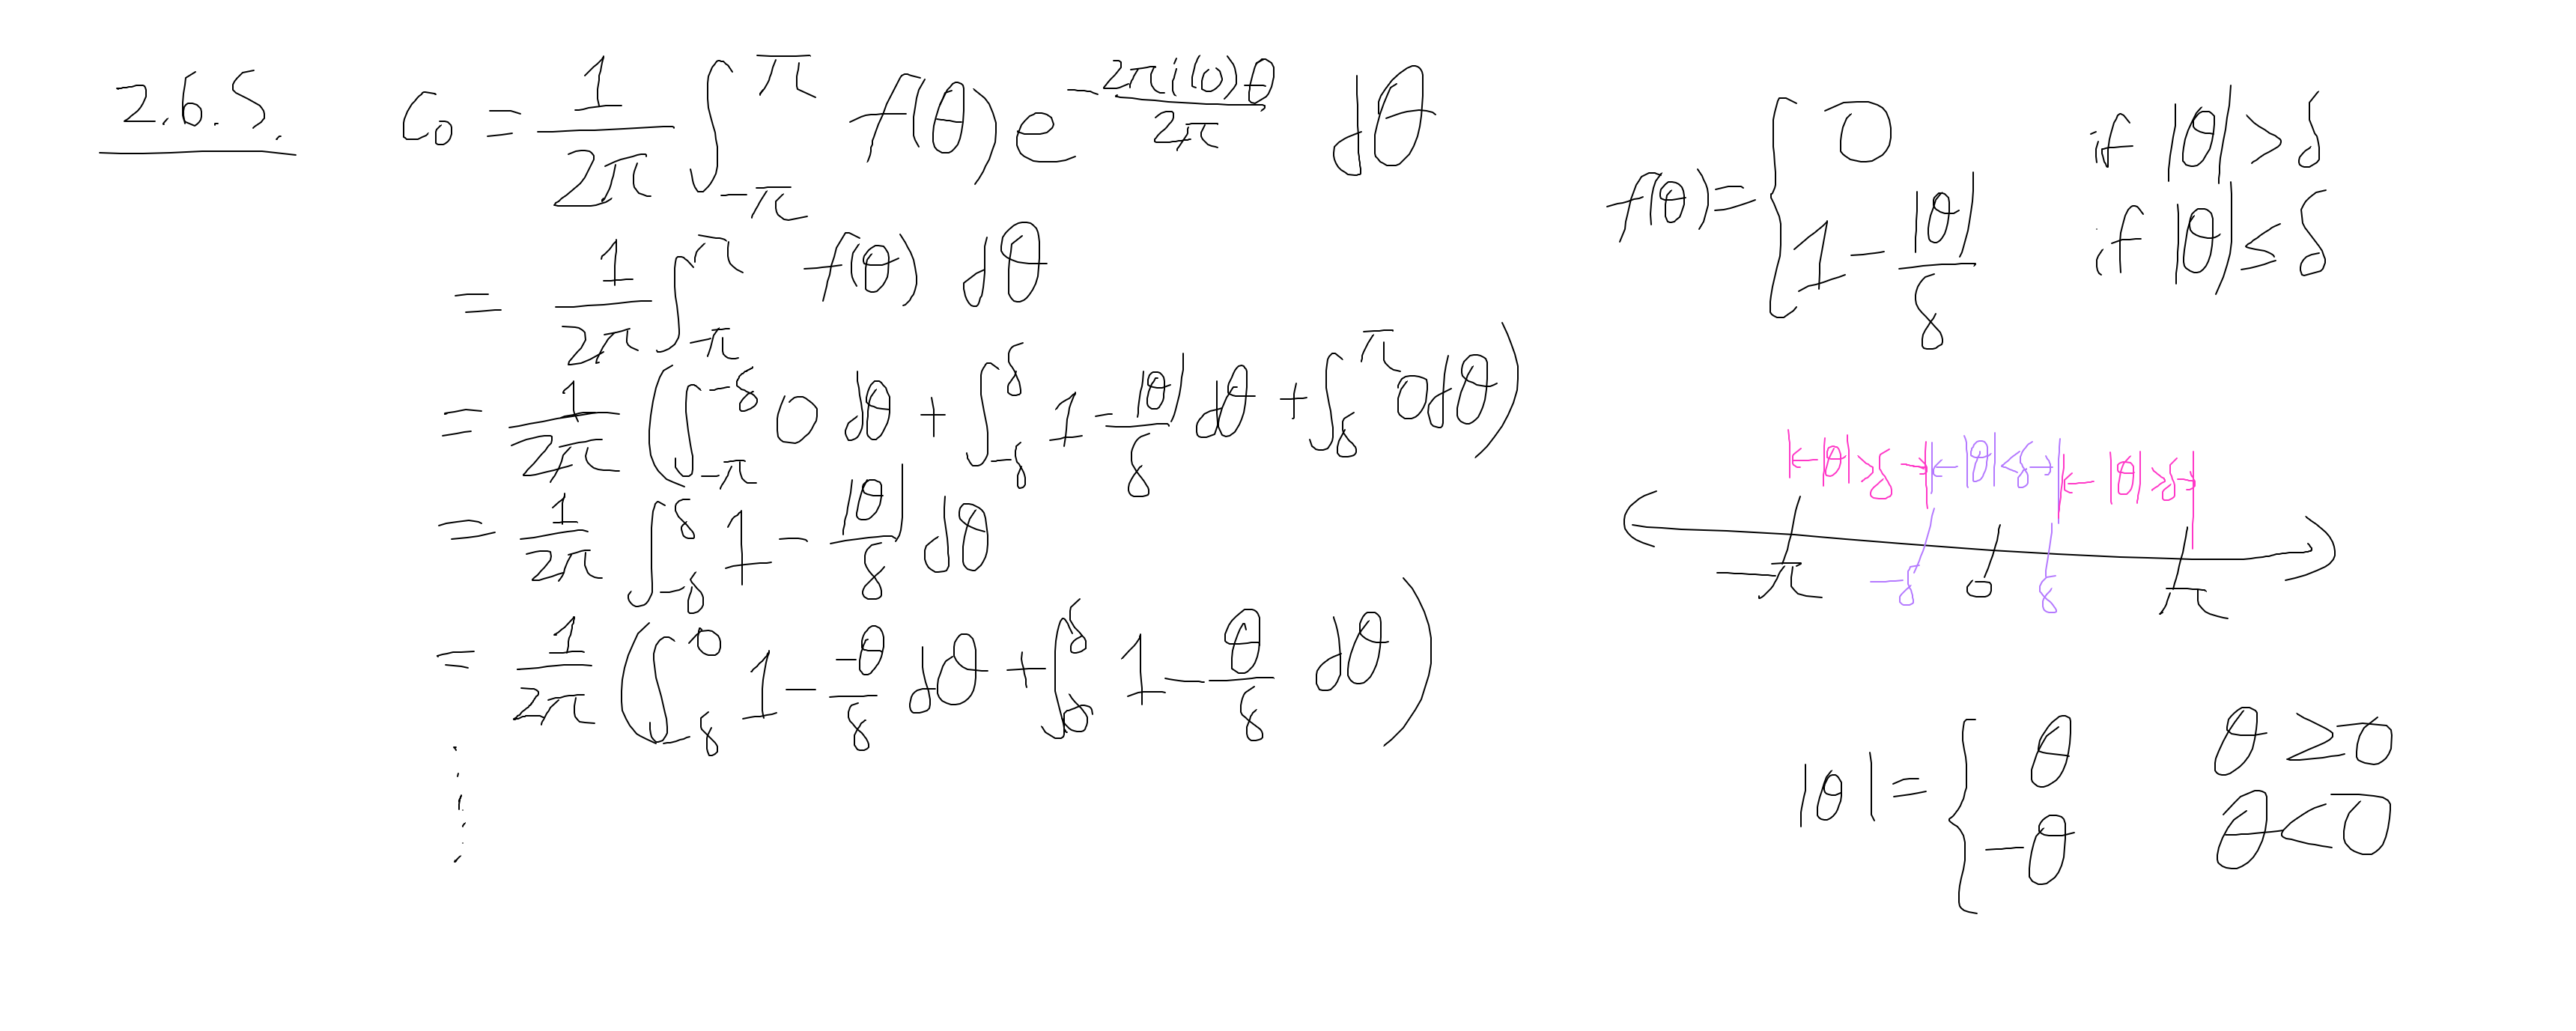 2.6.5. C₀ = 1/2π ∫_{-π}^{π} f(θ) e^{-2πi(0)θ/2π} dθ
= 1/2π ∫_{-π}^{π} f(θ) dθ
= 1/2π ( ∫_{-π}^{-δ} 0 dθ + ∫_{-δ}^{δ} 1 - |θ|/δ dθ + ∫_{δ}^{π} 0 dθ )
= 1/2π ∫_{-δ}^{δ} 1 - |θ|/δ dθ
= 1/2π ( ∫_{-δ}^{0} 1 - -θ/δ dθ + ∫_{0}^{δ} 1 - θ/δ dθ )
⋮
f(θ) = { 0 if |θ| > δ
1 - |θ|/δ if |θ| ≤ δ
|θ| > δ |θ| < δ |θ| > δ
-π -δ 0 δ π
|θ| = { θ θ ≥ 0
-θ θ < 0